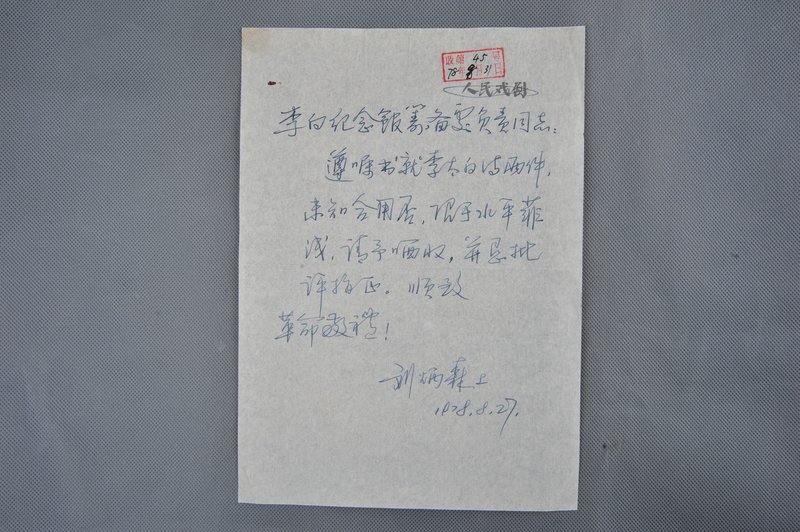 收第45号
78年8月31日
人民戏剧
李白纪念馆筹备处负责同志：
遵嘱书就李太白诗两件，
未知合用否，限于水平菲
浅，请予哂收，并恳批
评指正。顺致
革命敬礼！
刘炳森上
1978.8.27.